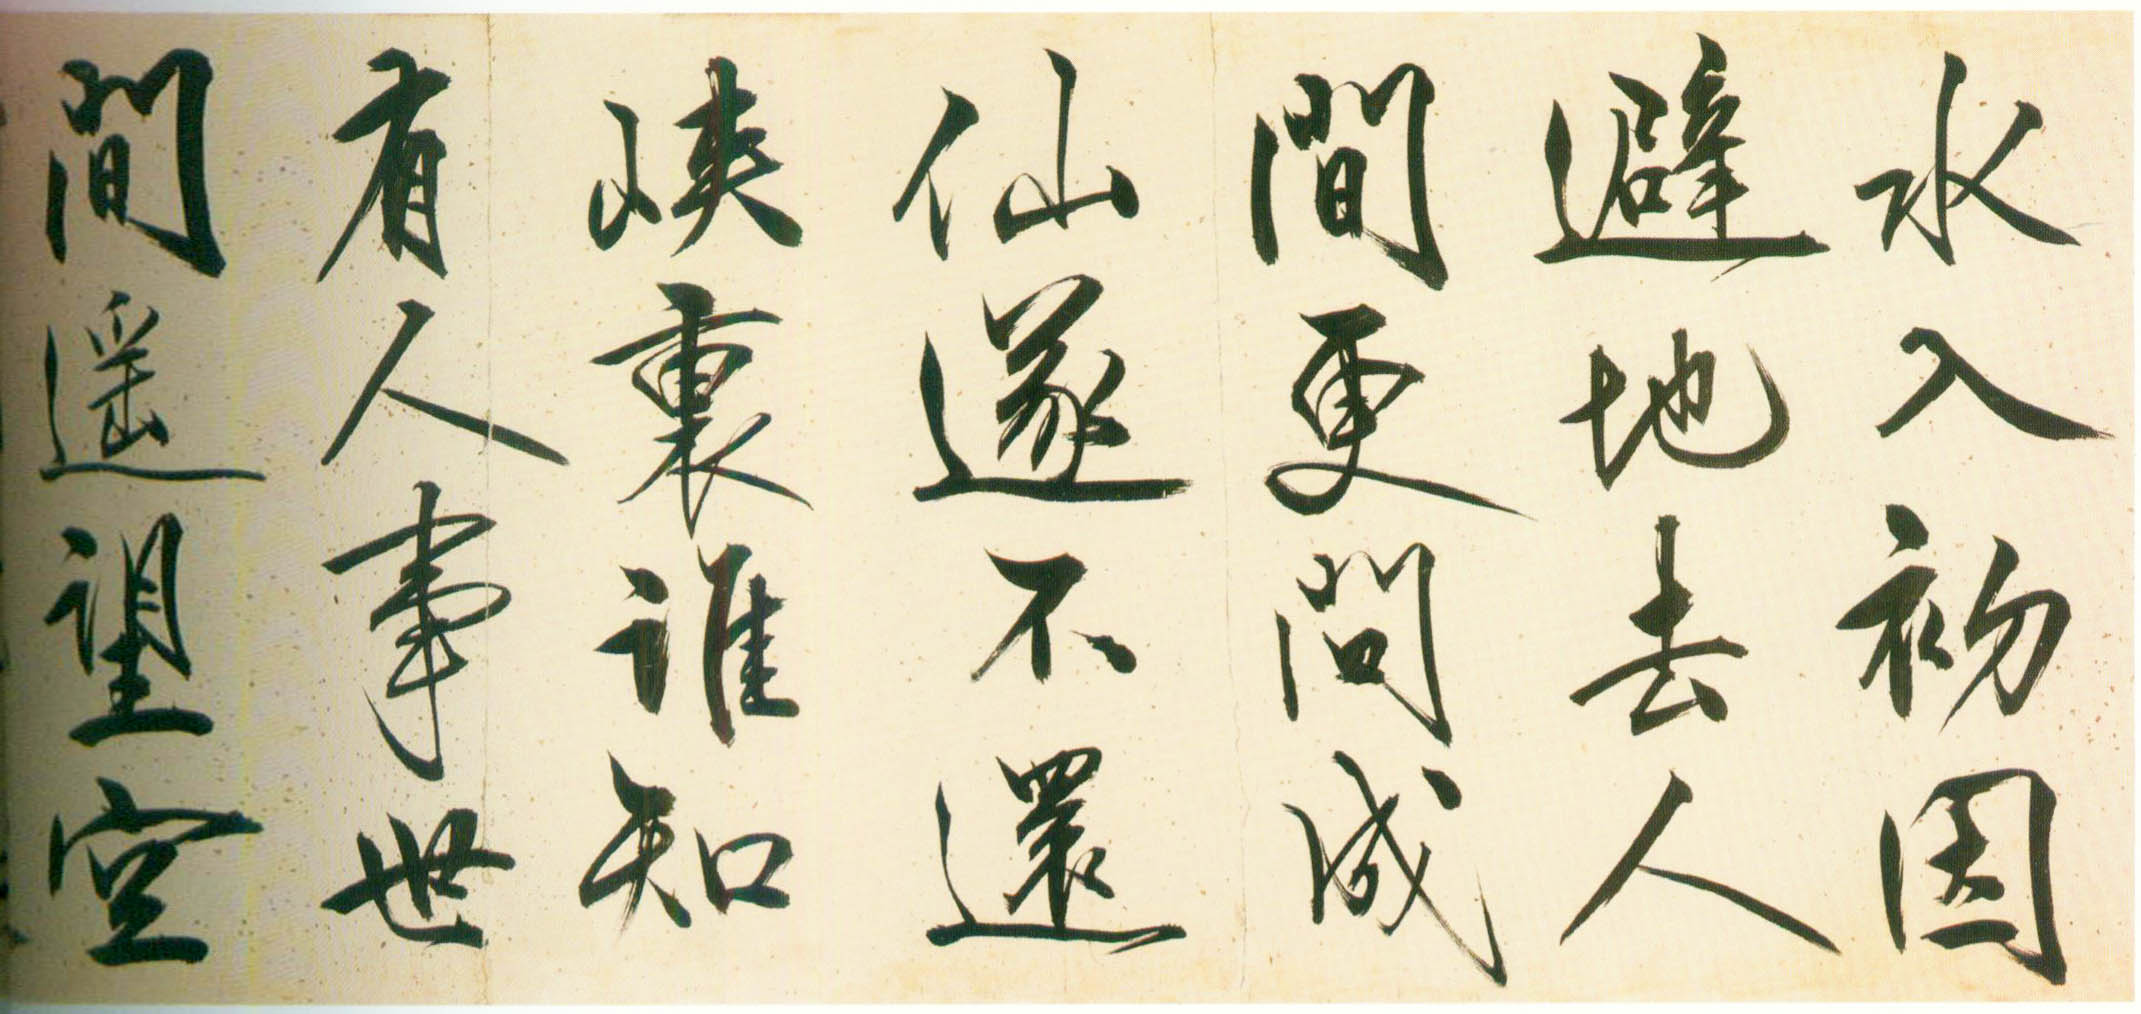 水入初因
避地去人
間更問成
仙遂不還
峽裏誰知
有人事世
間遥望空